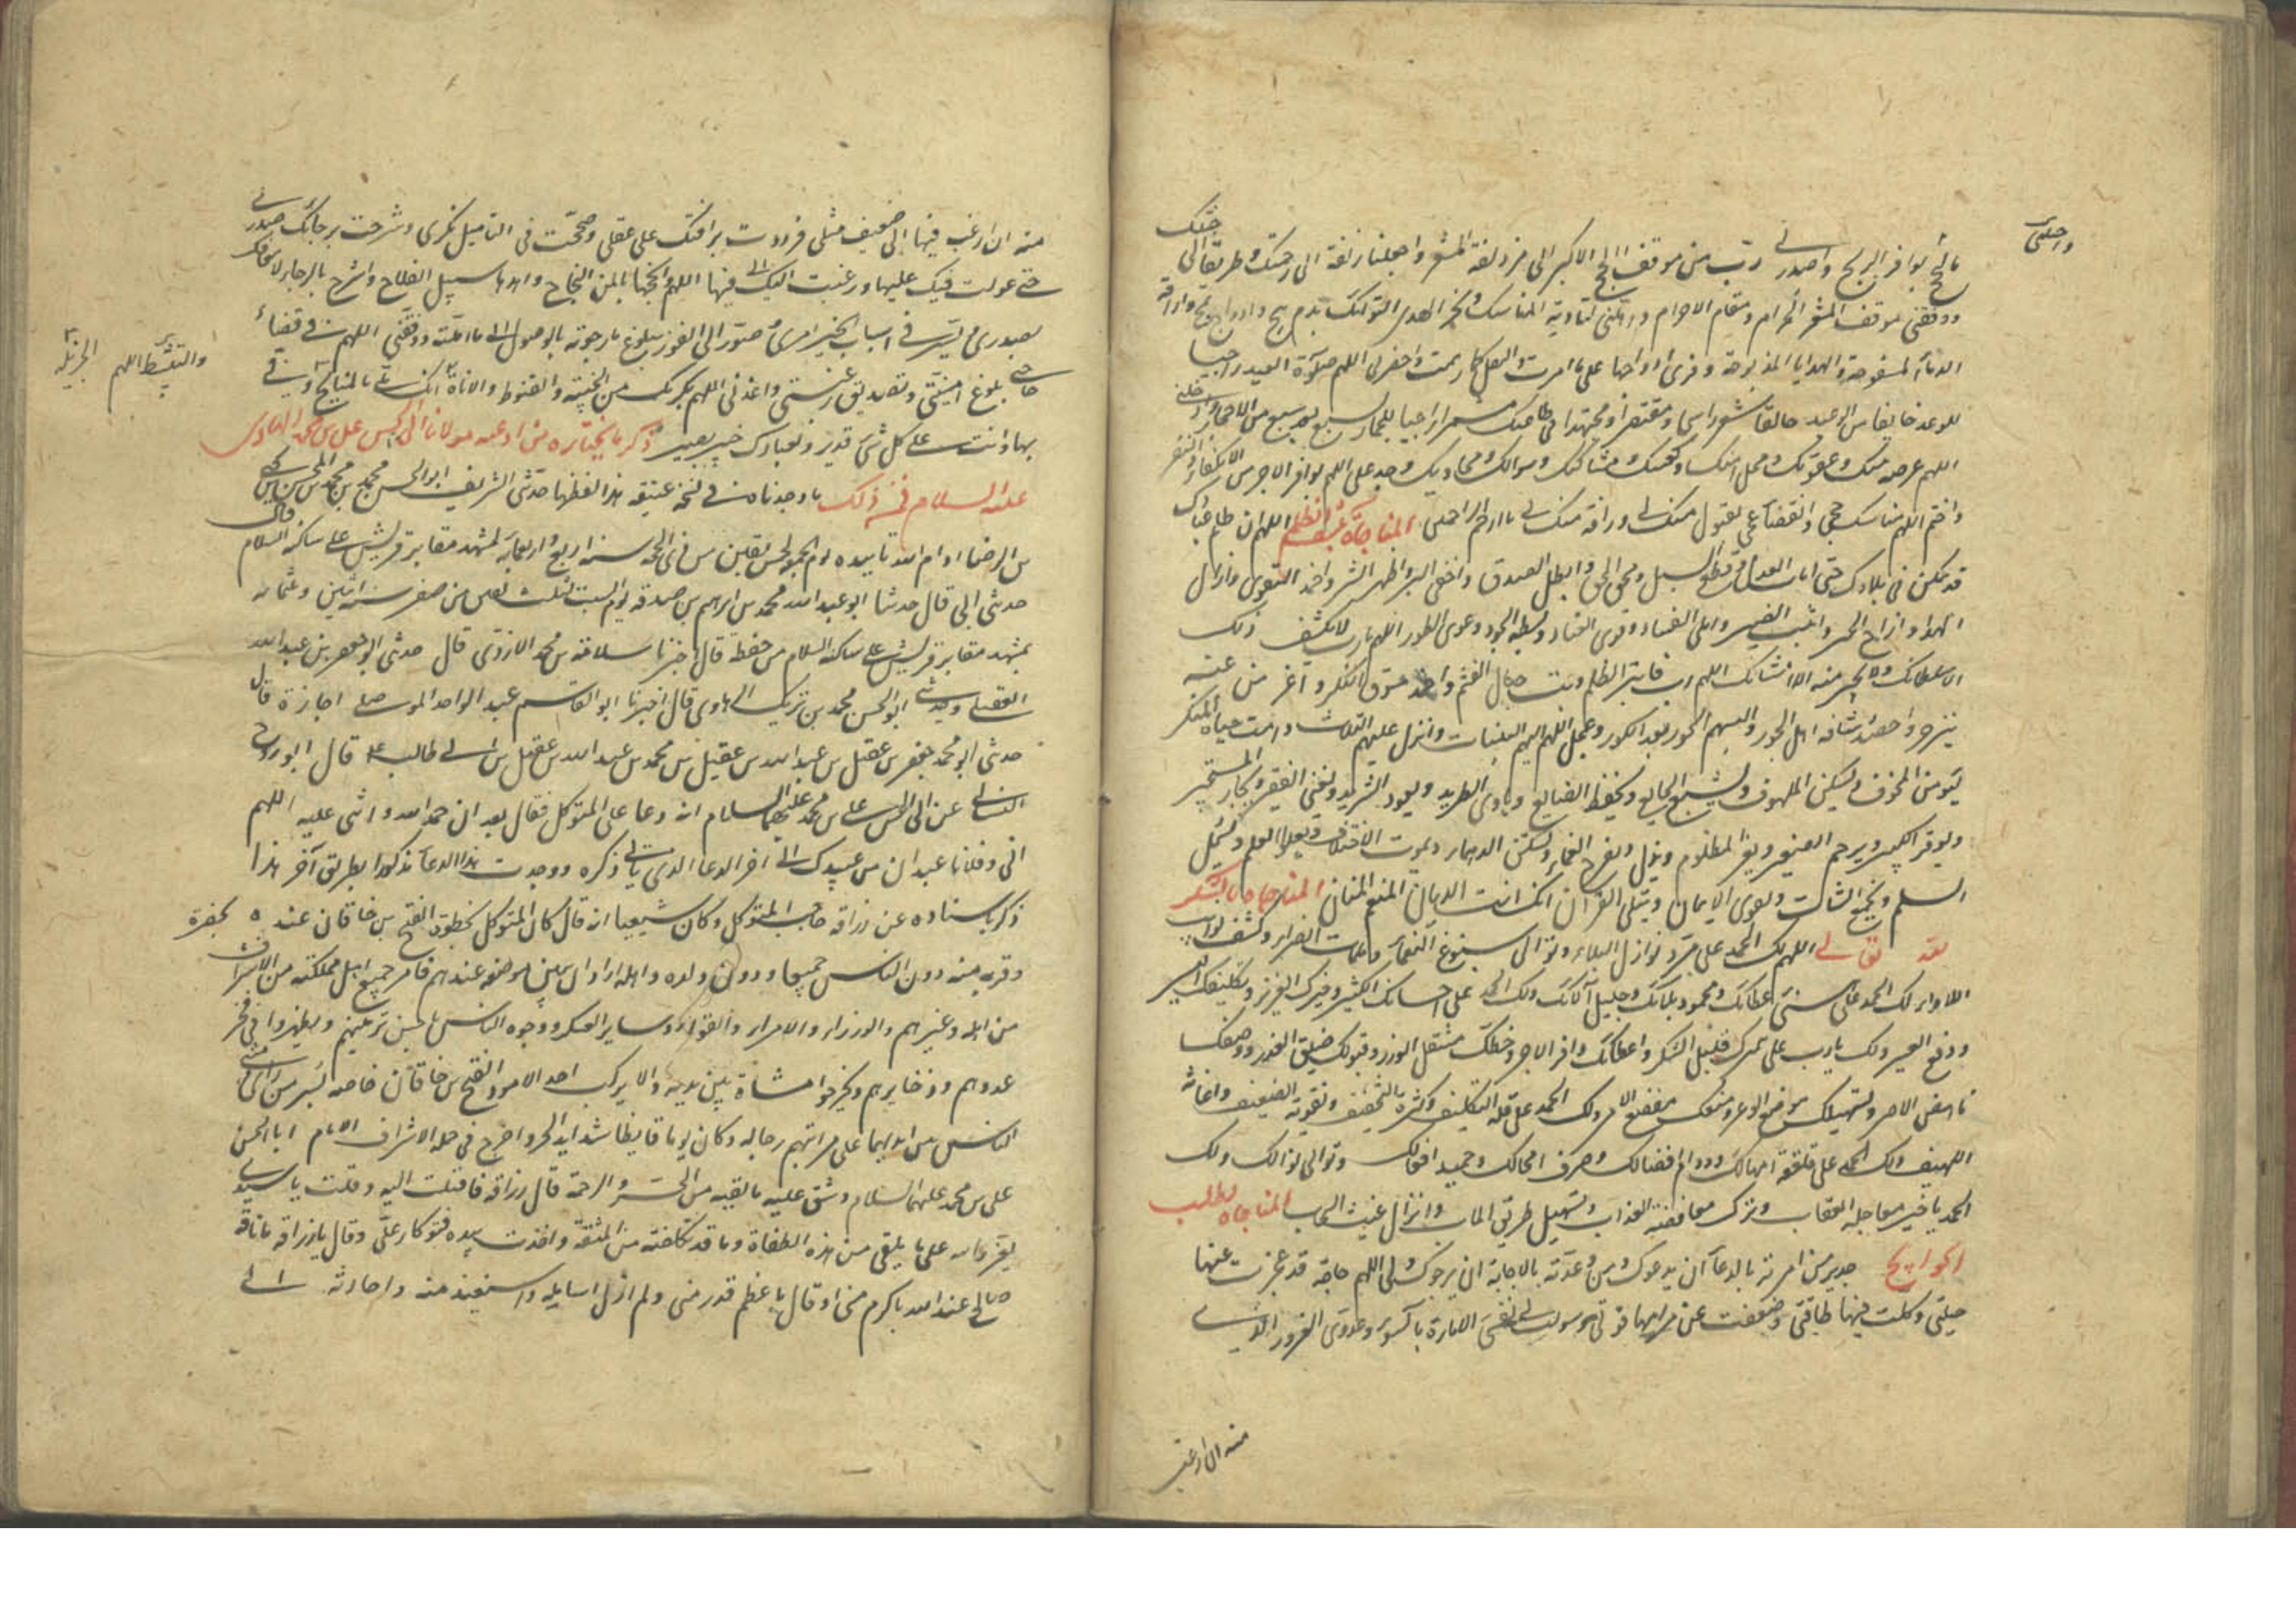 واجلنى
ما لحج بوافر الربح واصدرنى رب من موقف الحج الاكبر الى مزدلفة المشعر واجعلها زلفة الى رحمتك وطريقا الى جنتك
ووقفنى موقف المشعر الحرام ومقام الاحرام واهلنى لتادية المناسك ونحر الهدى التوامك بدم يثج واوداج تمج واراقة
الدماء المسفوحة والهدايا المذبوحة وفرى اوداجها على ما امرت والتنفل كما رسمت واحضرنى اللهم صلوة العيد راجيا
للوعد خايفا من الوعيد حالقا شعر راسى ومقصرا ومجتهدا فى طاعتك مشمرا راميا للجمار بسبع بعد سبع من الاحجار وادخلنى
اللهم عرصة بيتك وعقوتك ومحل امنك وكعبتك ومشاكيك وسؤالك ومحاويجك وجد على اللهم بوافر الاجر من الانكفاء والنفر
واختم اللهم مناسك حجى وانقضاء عجى بقبول منك لى ورافة منك بى يا ارحم الراحمين المناجاة بكشف الظلم اللهم ان ظلم عبادك
قد تمكن فى بلادك حتى امات العدل وقطع السبل ومحق الحق وابطل الصدق واخفى البر واظهر الشر واخمد التقوى وازال
الهدى وازاح الخير واثبت الضير وانمى الفساد وقوى العناد وبسط الجور وعدى الطور اللهم يا رب لا يكشف ذلك
الا سلطانك ولا يجير منه الا امتنانك اللهم رب فابتر الظلم وبت حبال الغشم واخمد سوق المنكر واعز من عنه
ينزجر واحصد شافة اهل الجور والبسهم الحور بعد الكور وعجل اللهم اليهم البيات وانزل عليهم المثلات وامت حياة المنكر
ليؤمن المخوف ويسكن الملهوف ويشبع الجايع ويحفظ الضايع وياوى الطريد ويعود الشريد ويغنى الفقير ويجار المستجير
ويوقر الكبير ويرحم الصغير ويعز المظلوم ويذل ويفرج الغماء وتسكن الدهماء ويموت الاختلاف ويعلو العلم ويشمل
السلم ويجمع الشتات ويقوى الايمان ويتلى القرآن انك انت الديان المنعم المنان المناجاة بالشكر
لله تعالى اللهم لك الحمد على مرد نوازل البلاء وتوالى سبوغ النعماء وملمات الضراء وكشف نوايب
اللاواء ولك الحمد على هنئ عطائك ومحمود بلائك وجليل آلائك ولك الحمد على احسانك الكثير وخيرك الغزير وتكليفك اليسير
ودفع العسير ولك يا رب على تثميرك قليل الشكر واعطائك وافر الاجر وحطك مثقل الوزر وقبولك ضيق العذر ووضعك
باهض الاصر وتسهيلك موضع الوعر ومنعك مفظع الامر ولك الحمد على قلة التكليف وكثرة التخفيف وتقوية الضعيف واغاثة
اللهيف ولك الحمد على امهالك ودوام افضالك وصرف امحالك وحميد افعالك وتوالى نوالك ولك
الحمد يا خير معاجلة العقاب وترك مغافصة العذاب وتسهيل طريق الماب وانزال غيث السحاب المناجاة بطلب
الحوايج جدير من امرته بالدعاء ان يدعوك ومن وعدته بالاجابة ان يرجوك ولى اللهم حاجة قد عجزت عنها
حيلتى وكلت فيها طاقتى وضعفت عن مرامها قوتى وسولت لى نفسى الامارة بالسوء وعدوى الغرور الذى
منه ان ارغب
منه ان ارغب فيها الى ضعيف مثلى فرددت برافتك على عقلى وصححت فى التاميل فكرى وشرحت برجائك صدرى
حتى عولت فيك عليها ورغبت اليك فيها اللهم وانجحها بايمن النجاح واهدها سبيل الفلاح واشرح بالرجاء لاسعافك
والتثبيط اللهم
الجزيلة
صدرى ويسر فى اسباب الخير امرى وصور الى الفوز ببلوغ ما رجوته بالوصول الى ما املته ووفقنى اللهم فى قضاء
حاجتى ببلوغ امنيتى وتصديق رغبتى واعذنى اللهم بكرمك من الخيبة والقنوط والاناة انك ملئ بالمنايح وفى
بها وانت على كل شئ قدير وبعبادك خبير بصير ذكر ما نختاره من ادعيه مولانا ابى الحسن على بن محمد الهادى
عليه السلام فمن ذلك ما وجدناه فى نسخة عتيقه هذا لفظها حدثنى الشريف ابو الحسن محمد بن محمد بن المحسن بن يحيى
بن الرضا ادام الله تاييده يوم الجمعة لخمس بقين من ذى الحجة سنة اربع واربعمائة بمشهد مقابر قريش على ساكنه السلام قال
حدثنى ابى قال حدثنا ابو عبد الله محمد بن ابرهيم بن صدقه يوم السبت لثلث بقين من صفر سنة اثنين وثمانه
بمشهد مقابر قريش على ساكنه السلام من حفظه قال اخبرنا سلامة بن محمد الازدى قال حدثنى ابو جعفر بن عبد الله
العقيلى وحدثنى ابو الحسن محمد بن تريك الرهاوى قال اخبرنا ابو القاسم عبد الواحد الموصلى اجازة قال
حدثنى ابو محمد جعفر بن عقيل بن عبد الله بن عقيل بن محمد بن عبد الله بن عقيل بن ابى طالب قال ابو روح
النسائى عن ابى الحسن على بن محمد عليهما السلام انه دعا على المتوكل فقال بعد ان حمد الله واثنى عليه اللهم
انى وفلانا عبدان من عبيدك الى آخر الدعا الذى ياتى ذكره ووجدت هذا الدعاء مذكورا بطريق آخر هذا
ذكر باسناده عن زراقه حاجب المتوكل وكان شيعيا انه قال كان المتوكل يحظوة الفتح بن خاقان عنده
وقربه منه دون الناس جميعا ودون ولده واهله اراد ان يبين موضعه عندهم فامر جميع اهل مملكته من الاشراف
من اهله وغيرهم والوزراء والامراء والقواد وساير العسكر ووجوه الناس باحسن تزيينهم ويظهروا فى فخر
عددهم وذخايرهم ويخرجوا مشاة بين يديه والا يركب احد الا هو والفتح بن خاقان خاصه بسر من راى
الناس بين ايديهما على مراتبهم رجاله وكان يوما قايظا شديد الحر واخرج فى جملة الاشراف الامام ابا الحسن
على بن محمد عليهما السلام وشق عليه ما لقيه من الحر والزحمة قال زراقه فاقبلت اليه وقلت يا سيدى
يعز والله على ما يلقى من هذه الطغاة وما قد تكلفته من المشقة واخذت بيده فتوكأ على وقال يا زراقه ما ناقة
صالح عند الله باكرم منى او قال باعظم قدر منى ولم ازل اسايله واستفيد منه واحادثه الى